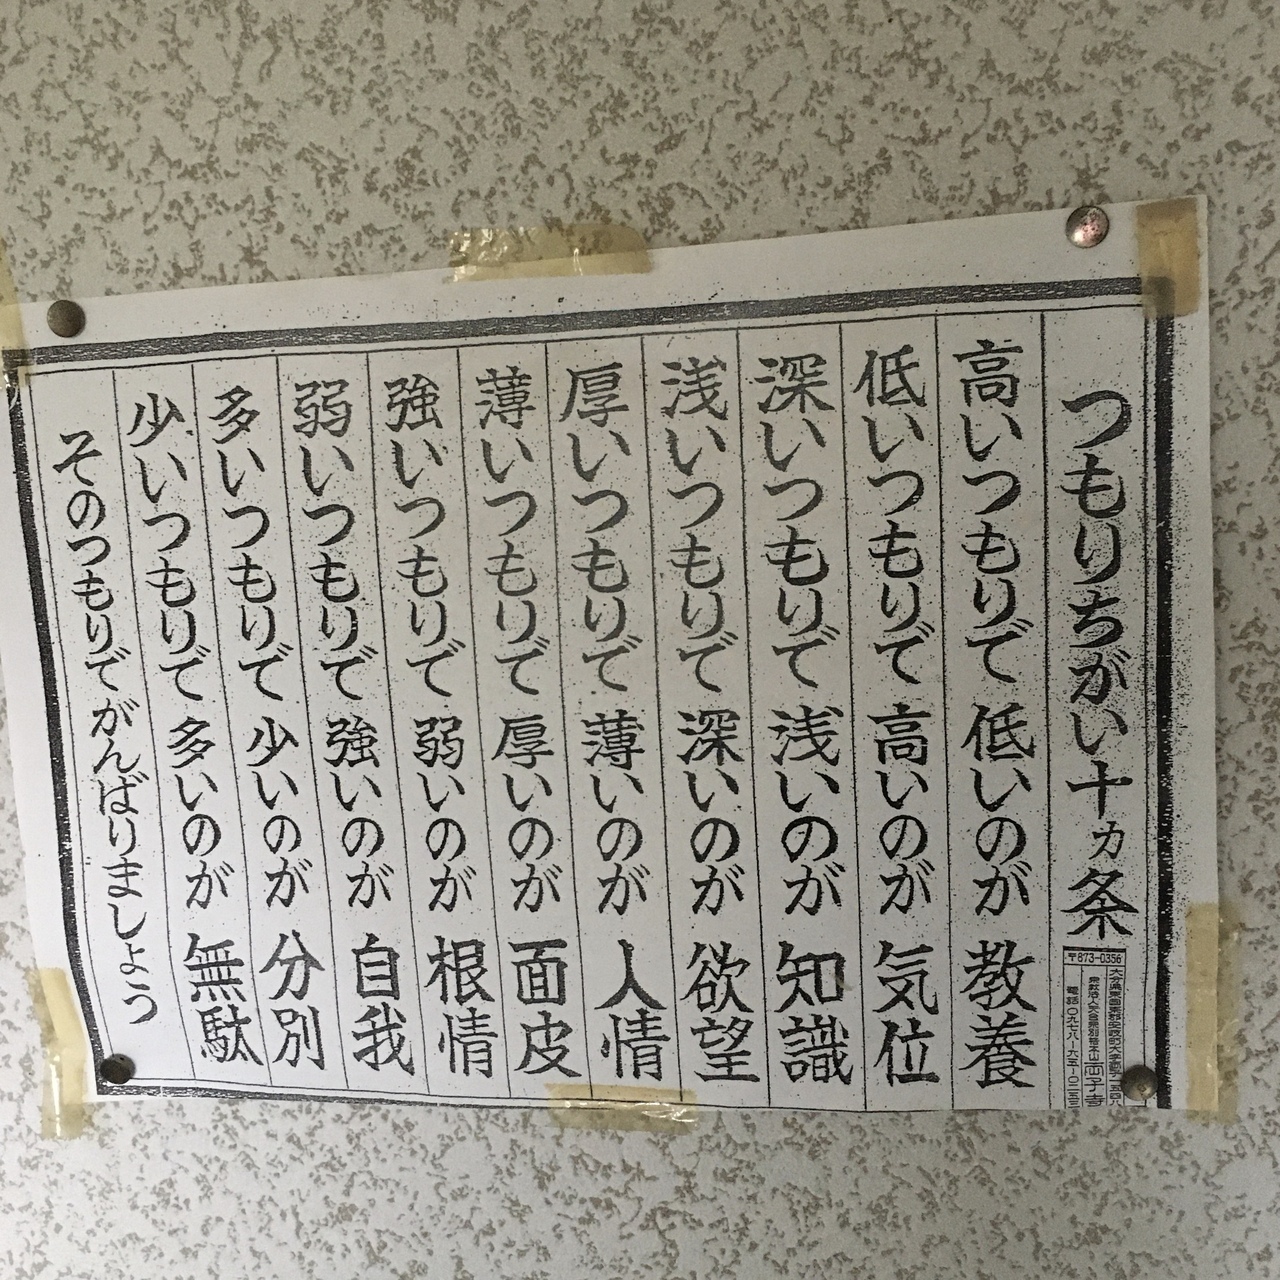 つもりちがい十カ条
〒873-0356
両子寺
高いつもりで低いのが教養
低いつもりで高いのが気位
深いつもりで浅いのが知識
浅いつもりで深いのが欲望
厚いつもりで薄いのが人情
薄いつもりで厚いのが面皮
強いつもりで弱いのが根情
弱いつもりで強いのが自我
多いつもりで少いのが分別
少いつもりで多いのが無駄
そのつもりでがんばりましょう